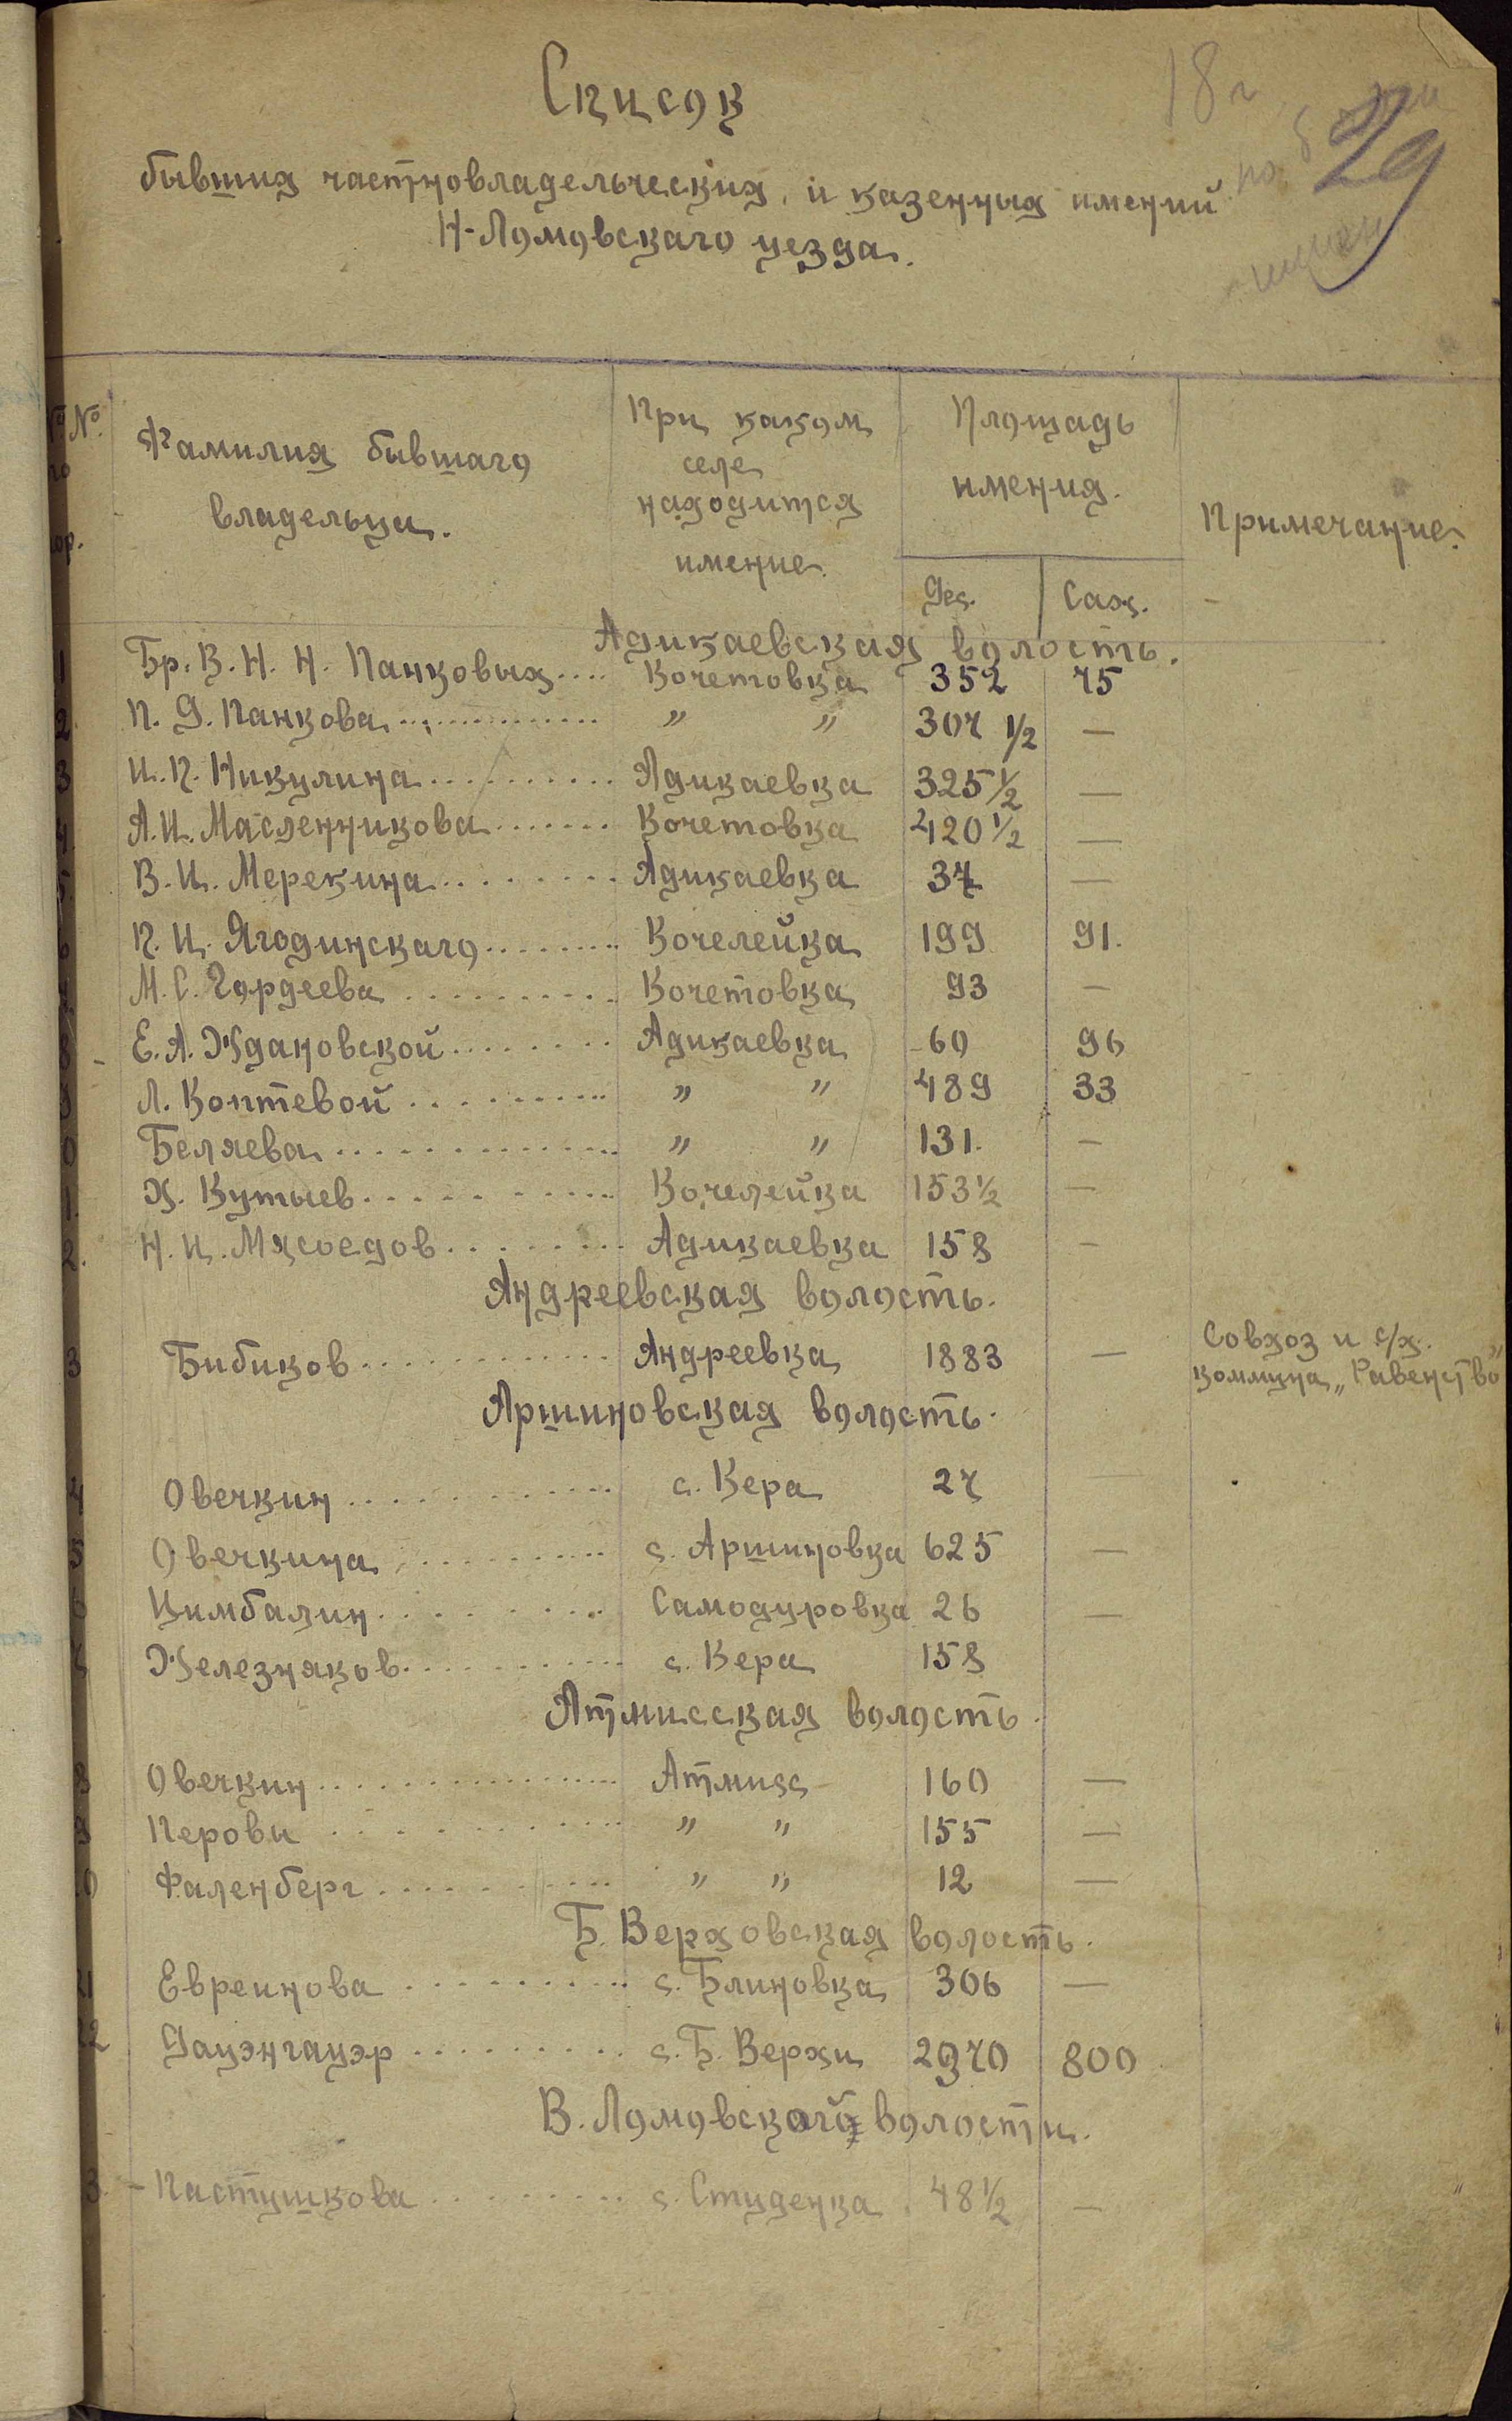 18 г
29
Список
бывших частновладельческих и казенных имений
Н-Ломовскаго уезда.
№ №
по
пор.
Фамилия бывшаго
владельца.
При каком
селе
находится
имение.
Площадь
имения.
Дес. Саж.
Примечание.
Адикаевская волость.
1 Бр. В. Н. Н. Панковых.... Кочетовка 352 75
2 П. Д. Панкова.............. " " 307 1/2 —
3 И. П. Никулина.......... Адикаевка 325 1/2 —
4 А. И. Масленникова....... Кочетовка 420 1/2 —
5 В. И. Мерекина......... Адикаевка 37 —
6 П. И. Ягодинскаго........ Кочелейка 199 91.
7 М. С. Гордеева.......... Кочетовка 93 —
8 Е. А. Ждановской........ Адикаевка 60 96
9 Л. Коптевой.......... " " 489 33
0 Беляева............. " " 131. —
1 Х. Кутыев.......... Кочелейка 153 1/2 —
2. Н. И. Мясоедов........ Адикаевка 158 —
Андреевская волость.
3 Бибиков............ Андреевка 1883 — Совхоз и с/х.
коммуна „Равенство"
Аршиновская волость.
4 Овечкин........... с. Кера 27 —
5 Овечкина.......... с. Аршиновка 625 —
6 Цимбалин......... Самодуровка 26 —
7 Железняков.......... с. Кера 158
Атмисская волость.
8 Овечкин............... Атмисс 160 —
9 Перовы............ " " 155 —
0 Фаленберг.......... " " 12 —
Б. Верховская волость.
21 Евреинова.......... с. Блиновка 306 —
22 Дауэнгауэр.......... с. Б. Верхи 2970 800
В. Ломовской волости.
3 Пастушкова......... с. Студенка 48 1/2 —